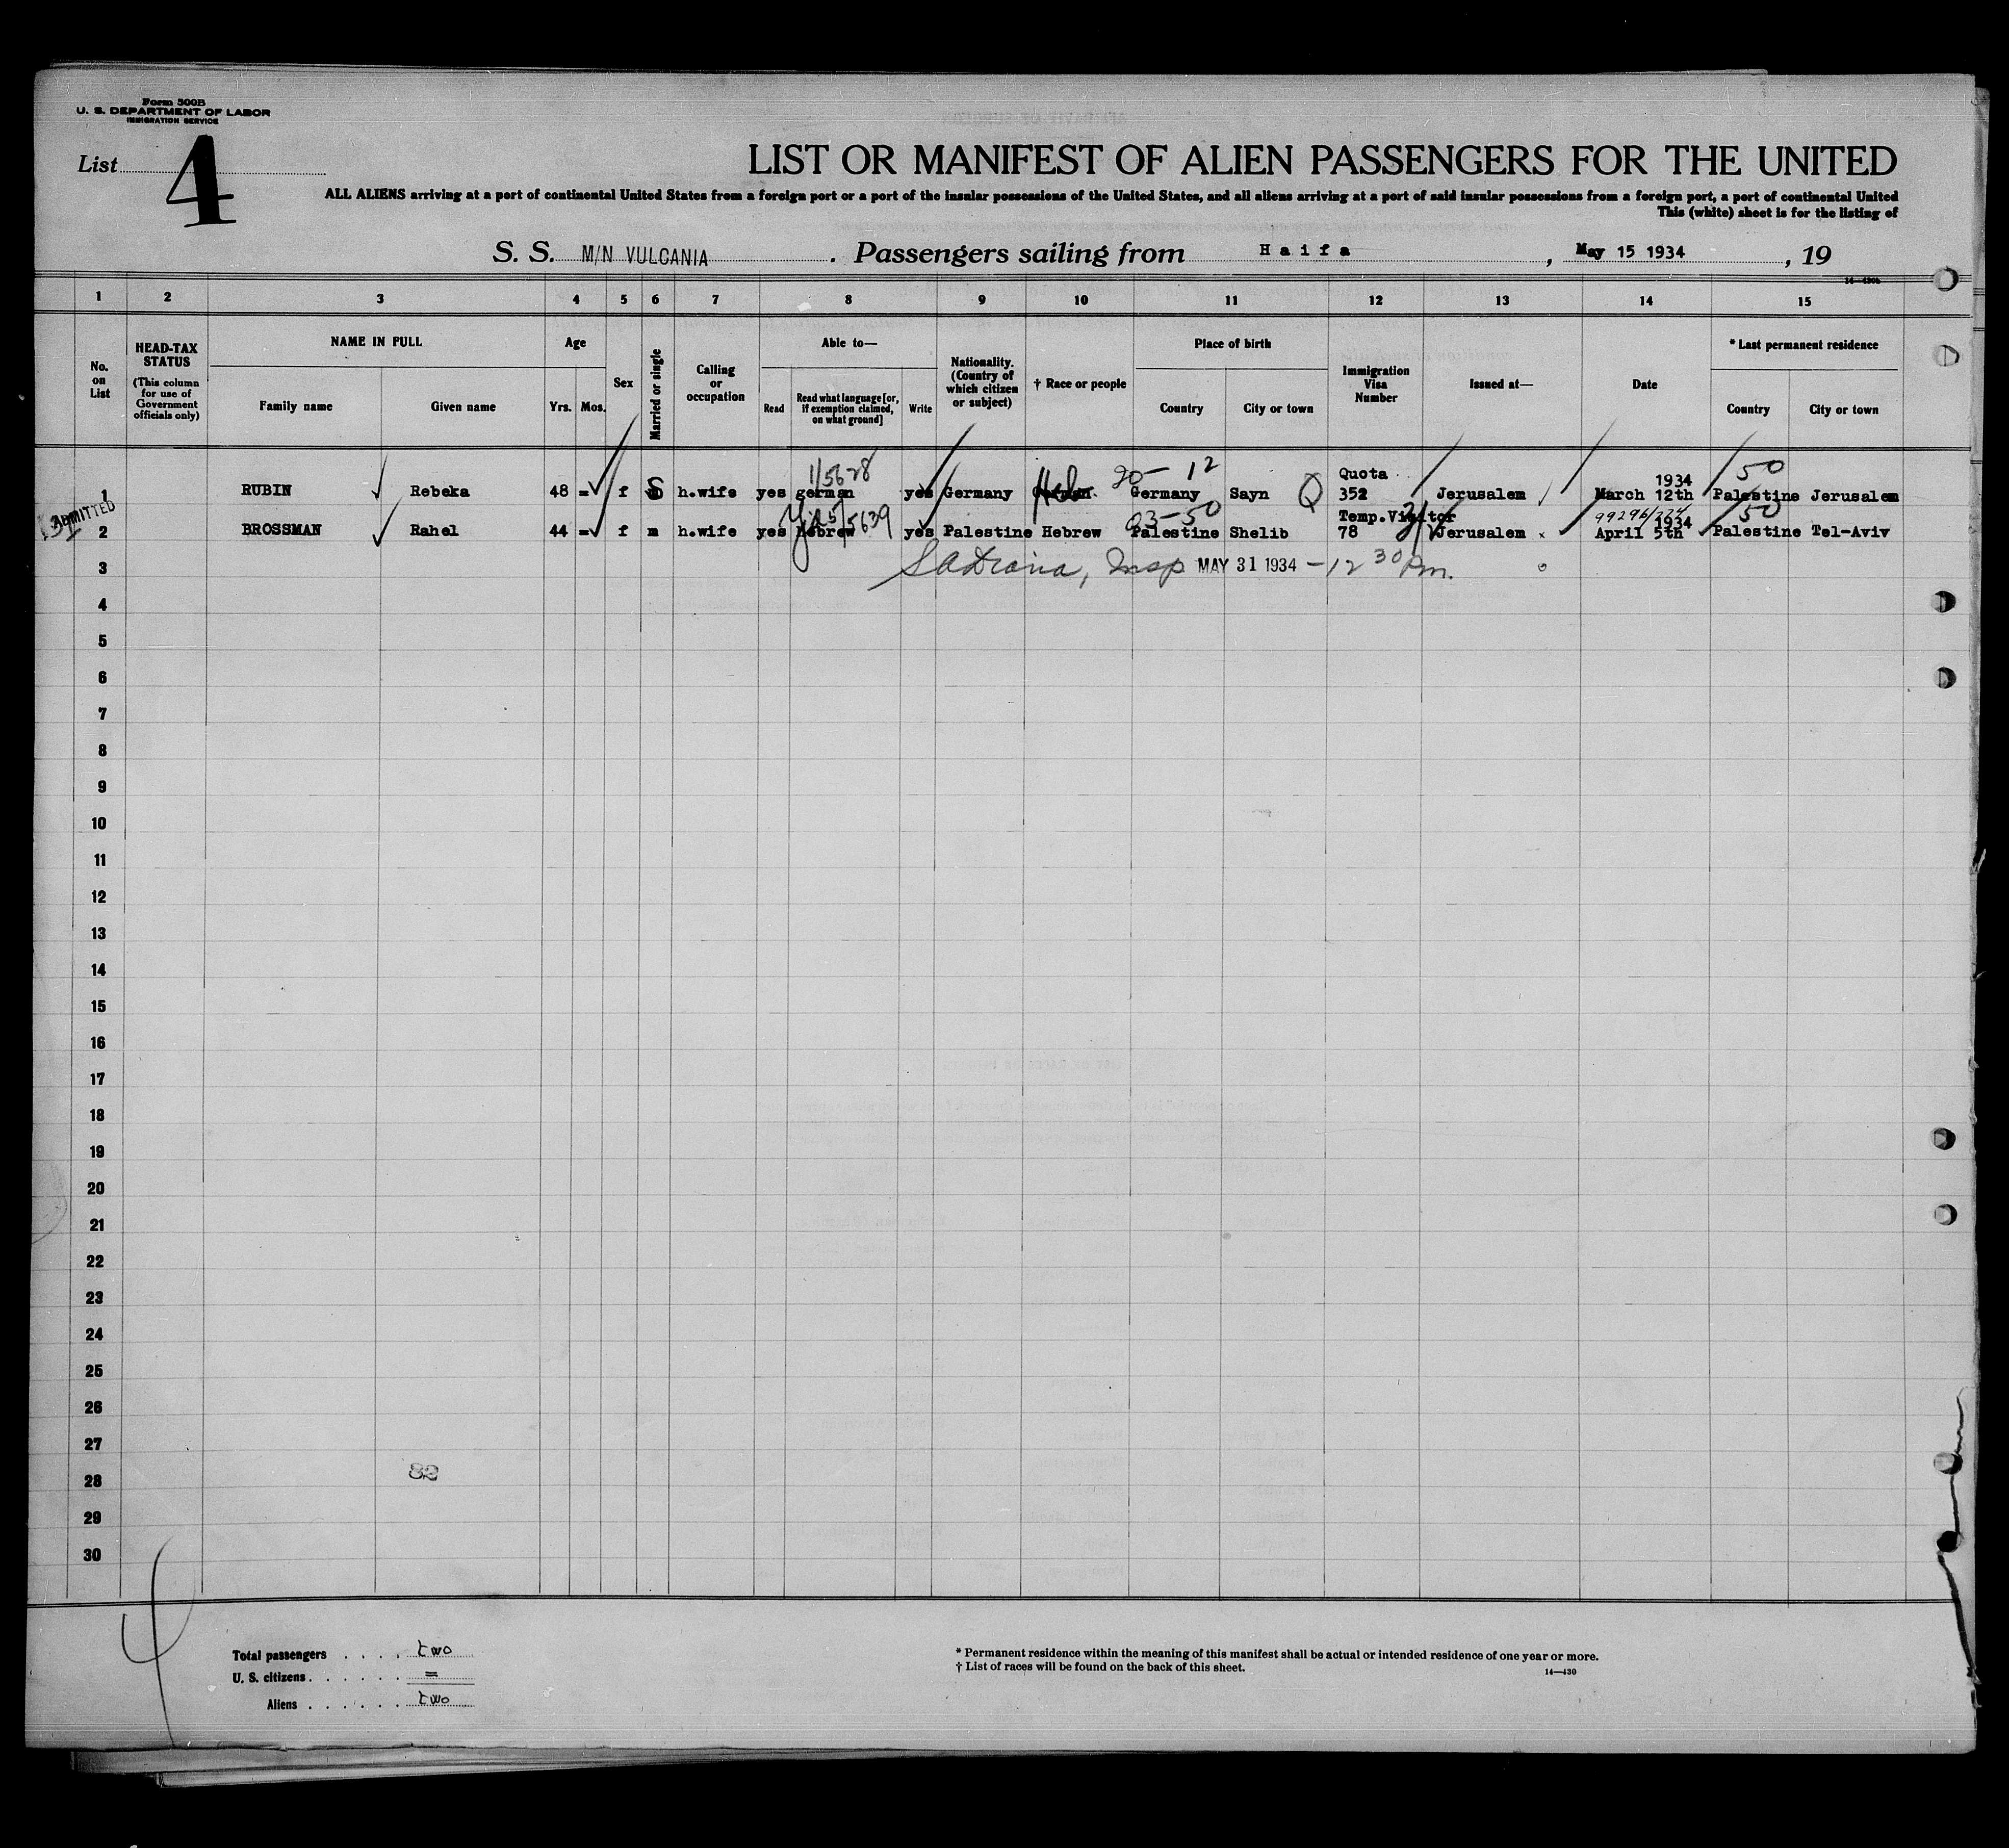 Form 500B
U. S. DEPARTMENT OF LABOR
IMMIGRATION SERVICE
List 4
LIST OR MANIFEST OF ALIEN PASSENGERS FOR THE UNITED
ALL ALIENS arriving at a port of continental United States from a foreign port or a port of the insular possessions of the United States, and all aliens arriving at a port of said insular possessions from a foreign port, a port of continental United
This (white) sheet is for the listing of
S. S. M/N VULCANIA. Passengers sailing from Haifa, May 15 1934, 19
14—430b
1 2 3 4 5 6 7 8 9 10 11 12 13 14 15
No. on List
HEAD-TAX STATUS (This column for use of Government officials only)
NAME IN FULL
Family name
Given name
Age
Yrs. Mos.
Sex
Married or single
Calling or occupation
Able to—
Read
Read what language [or, if exemption claimed, on what ground]
Write
Nationality. (Country of which citizen or subject)
† Race or people
Place of birth
Country
City or town
Immigration Visa Number
Issued at—
Date
* Last permanent residence
Country
City or town
1/5628 20- 12 Quota 1934 50
1 RUBIN Rebeka 48 = f S h.wife yes german yes Germany Heb. Germany Sayn Q 352 Jerusalem March 12th Palestine Jerusalem
ADMITTED
5/5639 93-50 Temp.Visitor 1934 50
2 BROSSMAN Rahel 44 = f m h.wife yes hebrew yes Palestine Hebrew Palestine Shelib 78 Jerusalem April 5th Palestine Tel-Aviv
3 Insp MAY 31 1934 - 12 30 Pm.
4
5
6
7
8
9
10
11
12
13
14
15
16
17
18
19
20
21
22
23
24
25
26
27
28
29
30
82
Total passengers . . . . two
U. S. citizens . . . . . . =
Aliens . . . . . . two
* Permanent residence within the meaning of this manifest shall be actual or intended residence of one year or more.
† List of races will be found on the back of this sheet.
14—430